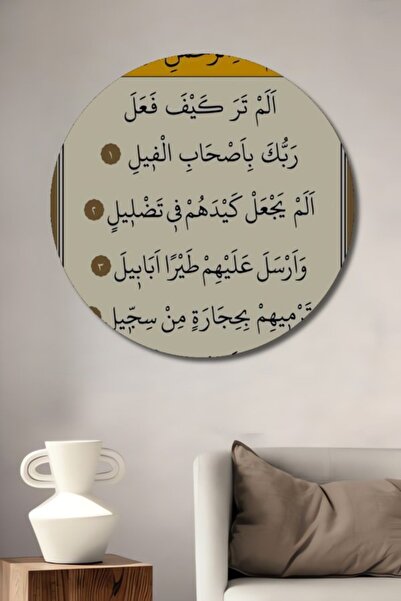 اَلَمْ تَرَ كَيْفَ فَعَلَ
رَبُّكَ بِاَصْحَابِ الْفٖيلِ ١
اَلَمْ يَجْعَلْ كَيْدَهُمْ فٖي تَضْلٖيلٍ ٢
وَاَرْسَلَ عَلَيْهِمْ طَيْرًا اَبَابٖيلَ ٣
تَرْمٖيهِمْ بِحِجَارَةٍ مِنْ سِجّٖيلٍ